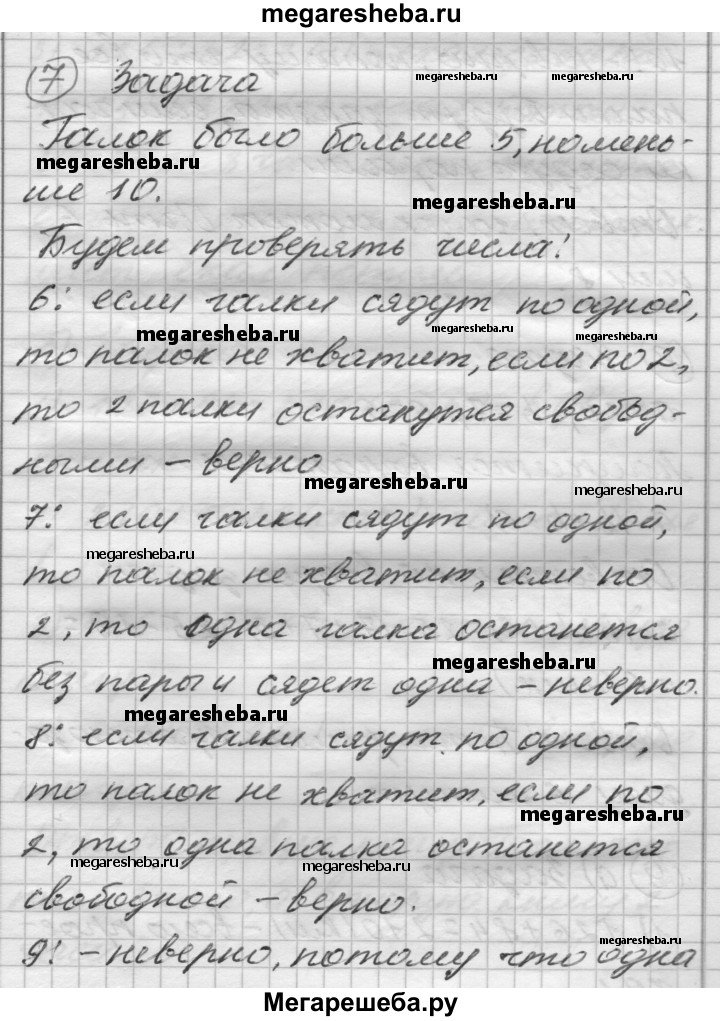 megaresheba.ru
7 Задача
megaresheba.ru megaresheba.ru
Галок было больше 5, но мень-
megaresheba.ru
ше 10.
megaresheba.ru
Будем проверять числа:
6: если галки сядут по одной,
megaresheba.ru megaresheba.ru megaresheba.ru
то палок не хватит, если по 2,
то 2 палки останутся свобод-
ными – верно
megaresheba.ru megaresheba.ru
7: если галки сядут по одной,
megaresheba.ru
то палок не хватит, если по
2, то одна галка останется
megaresheba.ru
без пары и сядет одна – неверно.
megaresheba.ru
8: если галки сядут по одной,
то палок не хватит, если по
megaresheba.ru
2, то одна палка останется
megaresheba.ru megaresheba.ru
свободной – верно.
9: – неверно, потому что одна
megaresheba.ru
Мегарешеба.ру